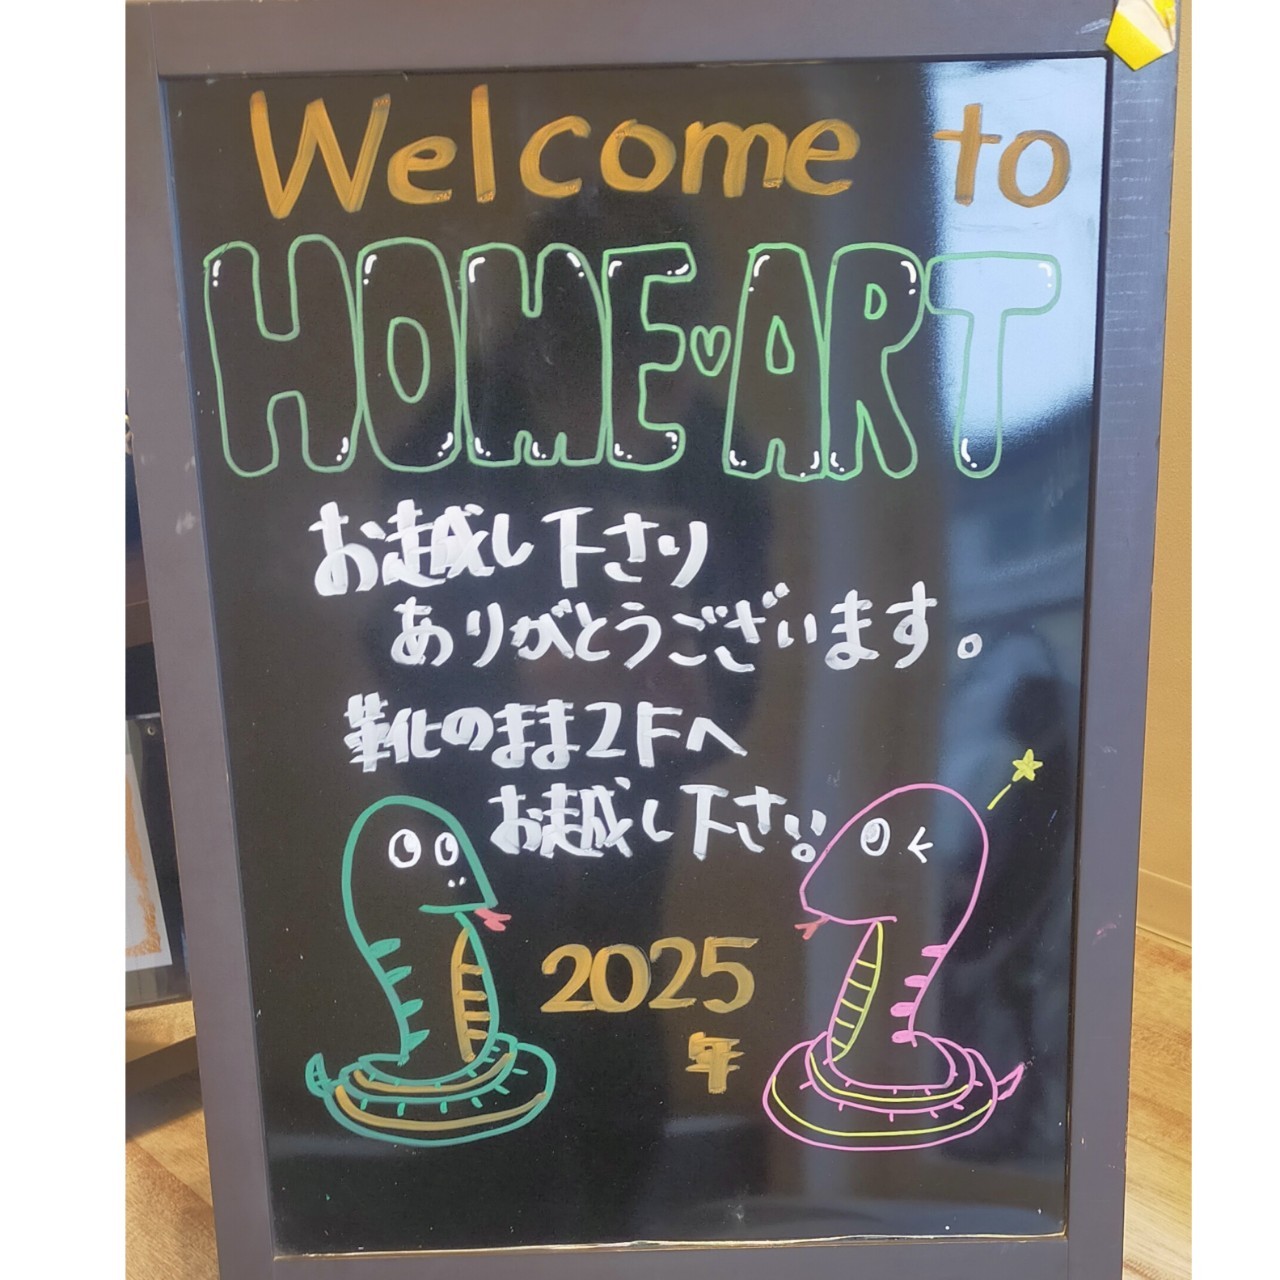 Welcome to
HOME♡ART
お越し下さり
ありがとうございます。
靴のまま2Fへ
お越し下さい!
2025
年